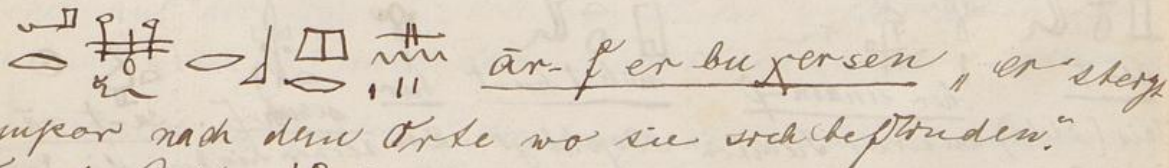 𓂋 𓆑 𓂋 𓃀 𓂋 𓊃 𓈖 𓏥 ār-f er bu χersen „er steigt
empor nach dem Orte wo sie sich befinden.“